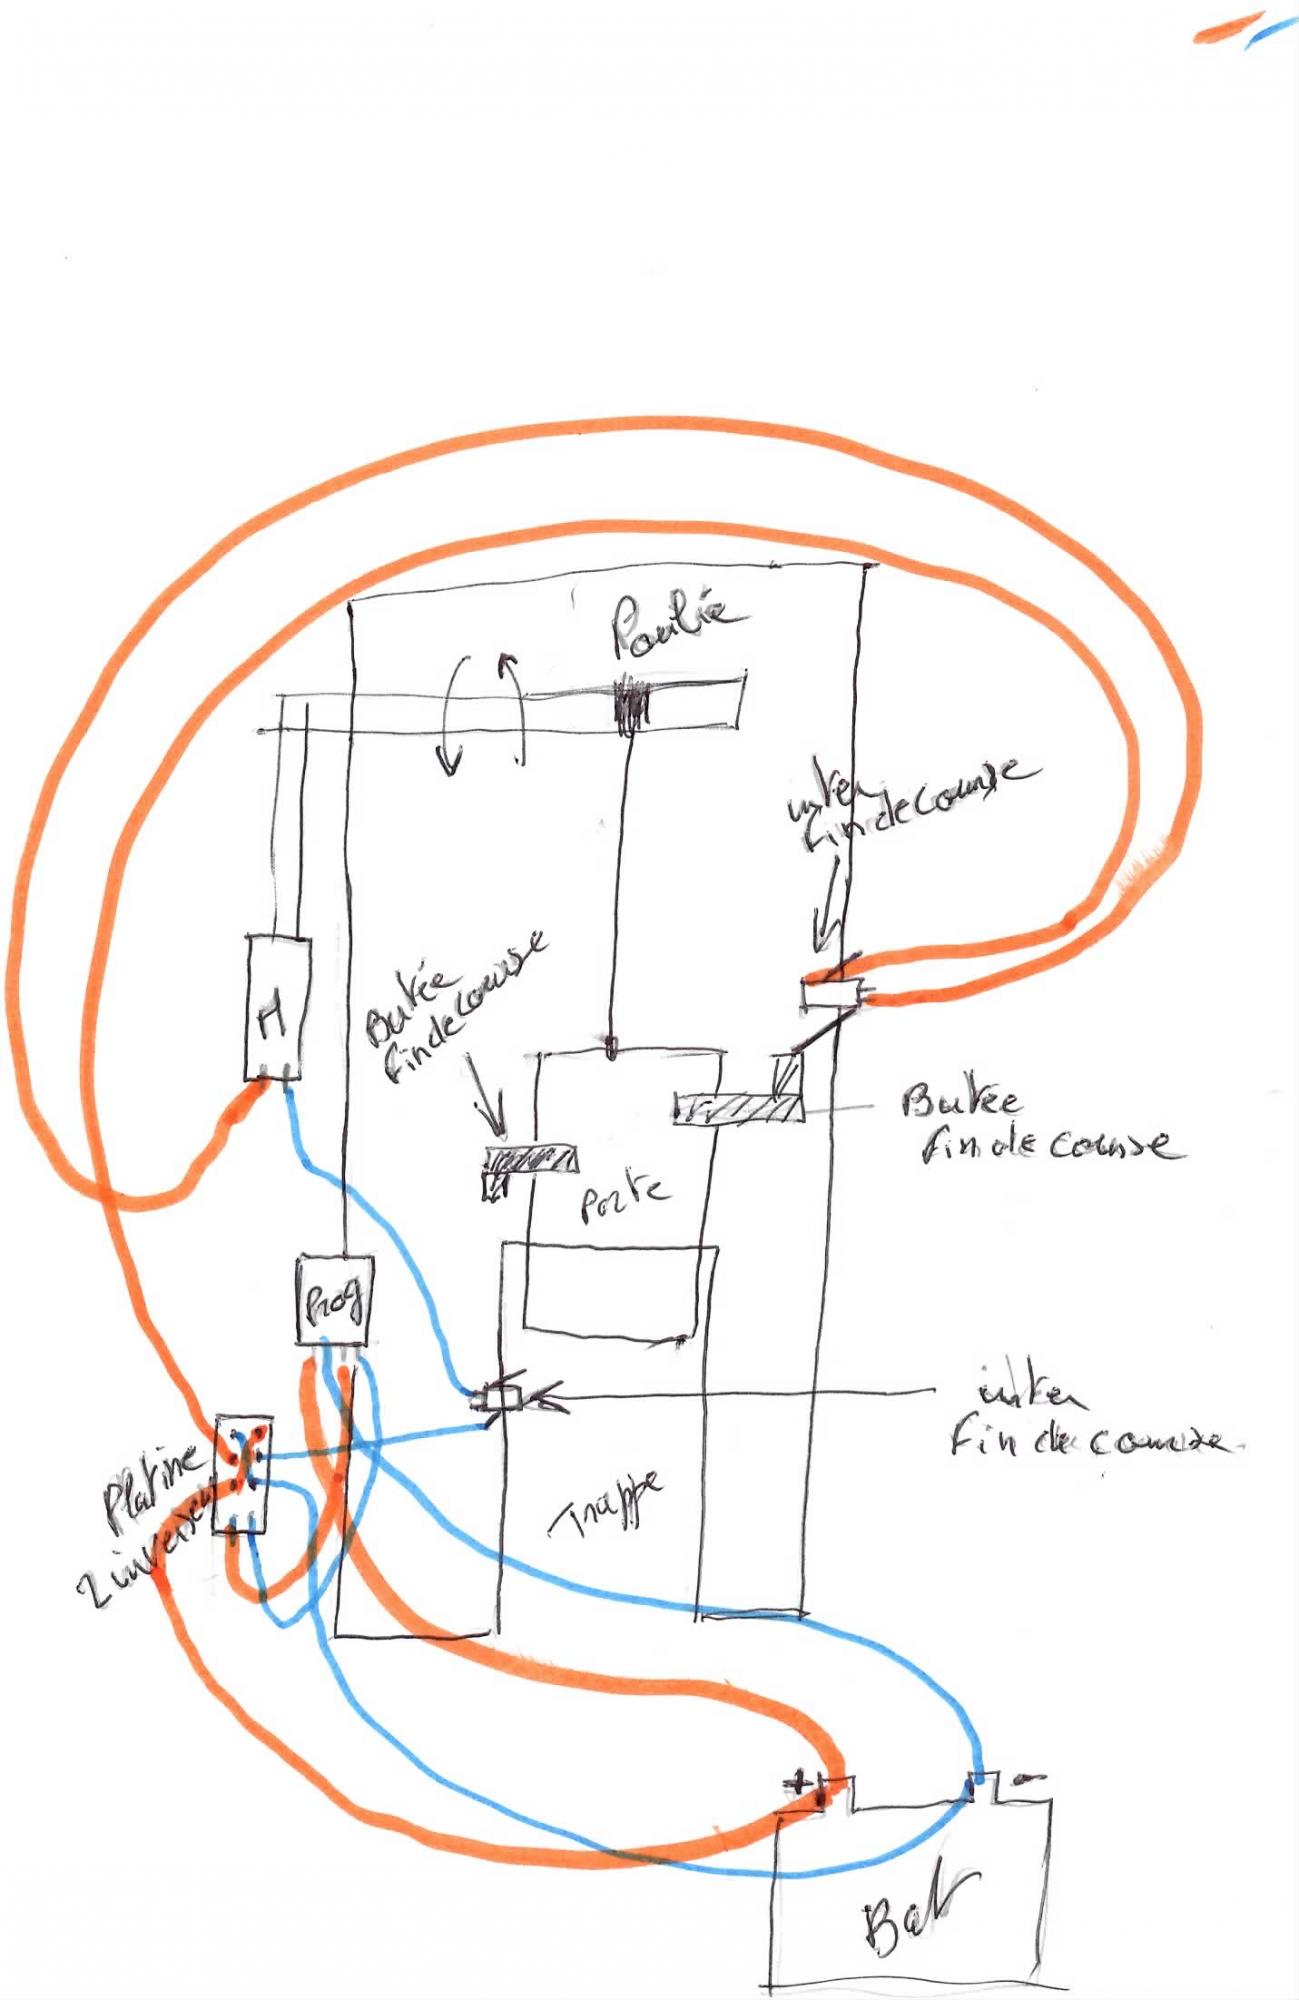 Poulie
inter
fin de course
Butée
fin de course
M
Butée
fin de course
Porte
Prog
inter
fin de course
Platine
2 inverseur
Trappe
+ -
Bat